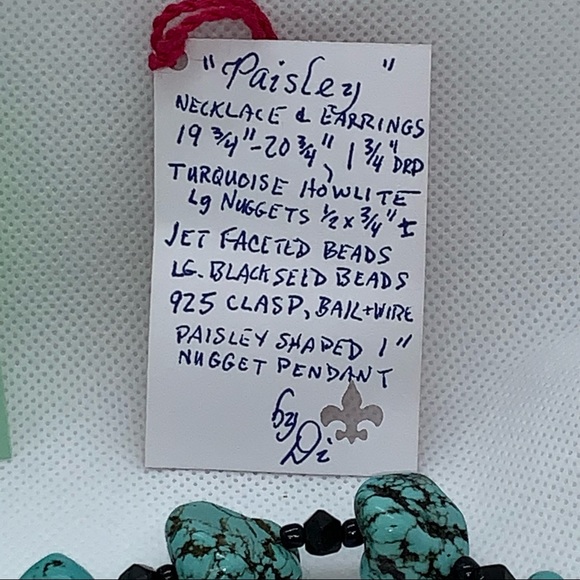 "Paisley"
NECKLACE & EARRINGS
19 3/4"-20 3/4", 1 3/4" DRP
TURQUOISE HOWLITE
Lg NUGGETS 1/2 x 3/4" ±
JET FACETED BEADS
LG. BLACK SEED BEADS
925 CLASP, BAIL+WIRE
PAISLEY SHAPED 1"
NUGGET PENDANT
by
Di